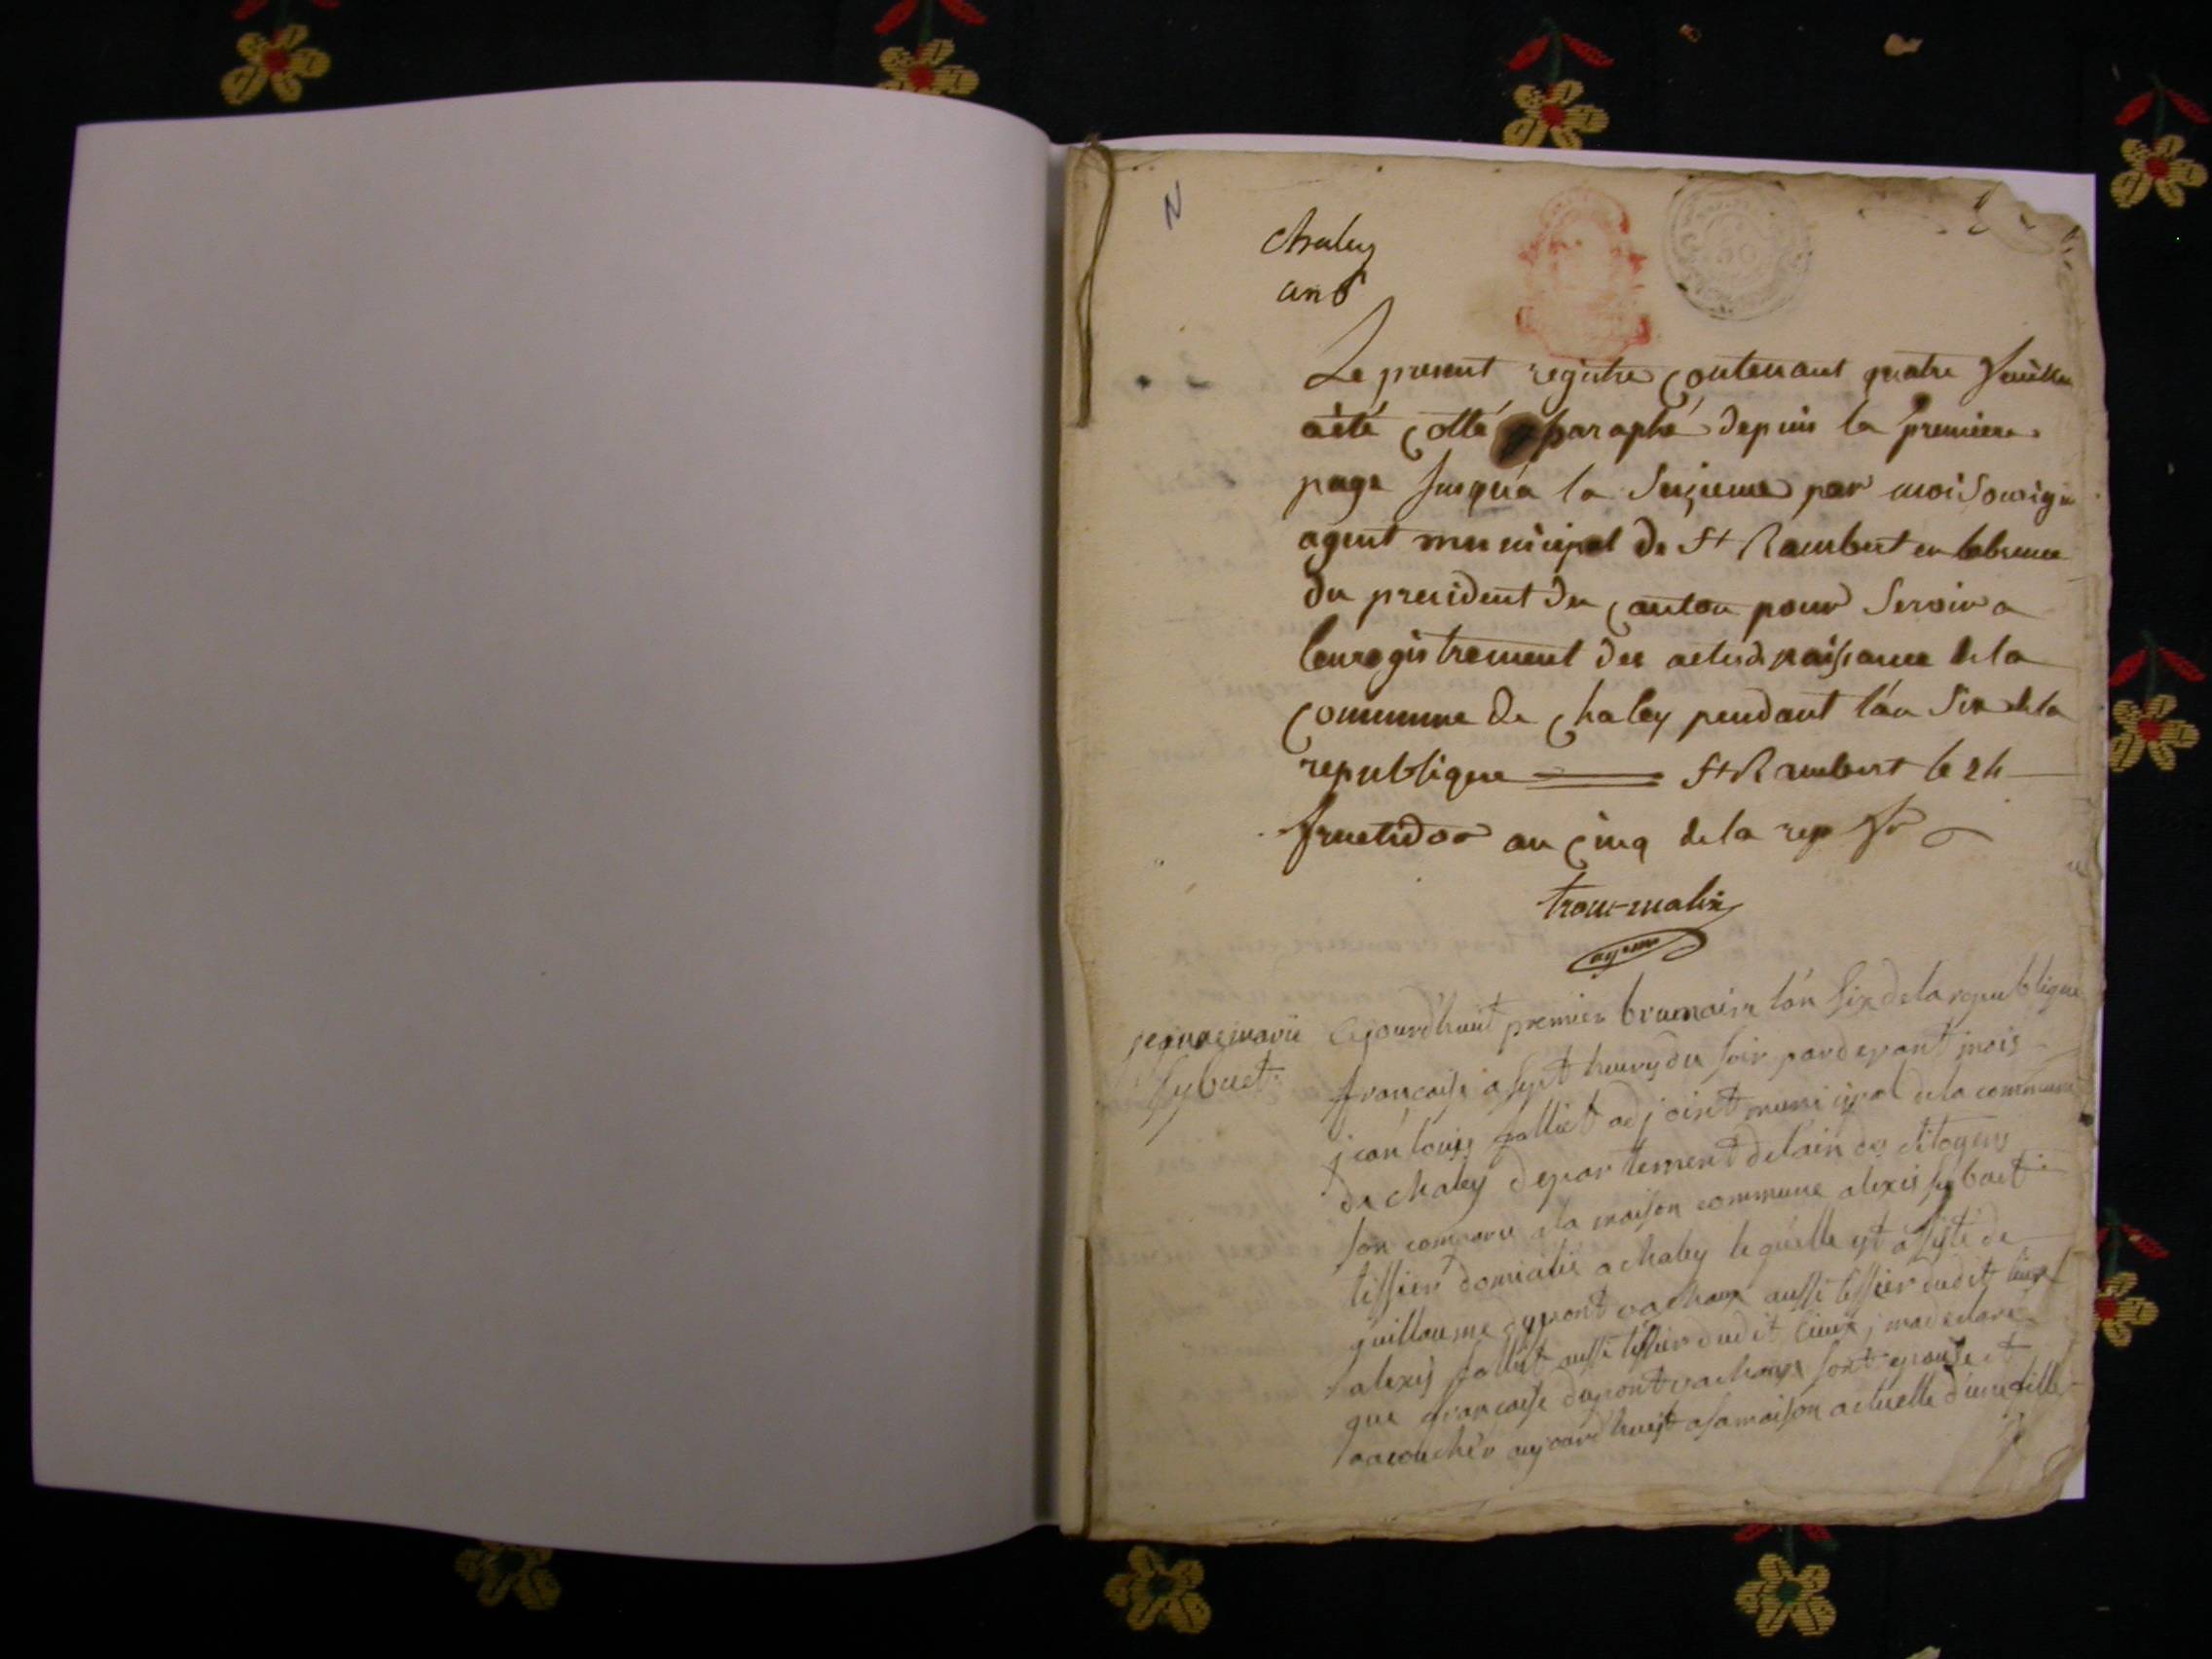 N
chaley
an 6
Le present registre contenant quatre feuilles
a été cotté paraphé depuis la premiere
page jusqu'a la seizieme par moi soussigné
agent municipal de St Rambert en labsence
du president du canton pour servoir a
lenregistrement des actes de naissance de la
commune de chaley pendant l'an six de la
republique St Rambert le 24
fructidor an cinq de la rep fr
trou-malin
agent
marie
sybuet
aujourdhuit premier brumaire l'an six de la republique
francaise a sept heures du soir pardevant mois
jean louis falliet adjoint municipal de la commune
de chaley departement de lain des citoyens
son comparu a la maison commune alexis sybuet
tissier domicilié a chaley le quelle est assisté de
guillaume dupont vachon aussi tissier dudit lieux
alexis falliet aussi tissier dudit lieux, ma declaré
que francoise dupont vachon sont epouse et
accouchér aujourdhuist a sa maison actuelle d'une fille